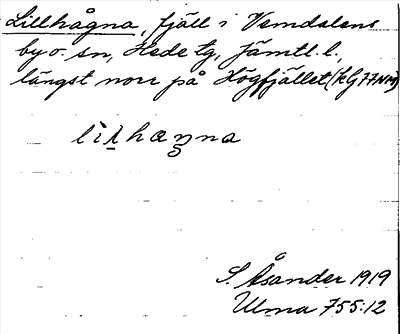 Lillhågna, fjäll i Vemdalens
by o. sn, Hede tg, Jämtl. l.,
längst norr på Högfjället (kG77NM)
lilhaƷna
S. Åsander 1919
Ulma 755:12